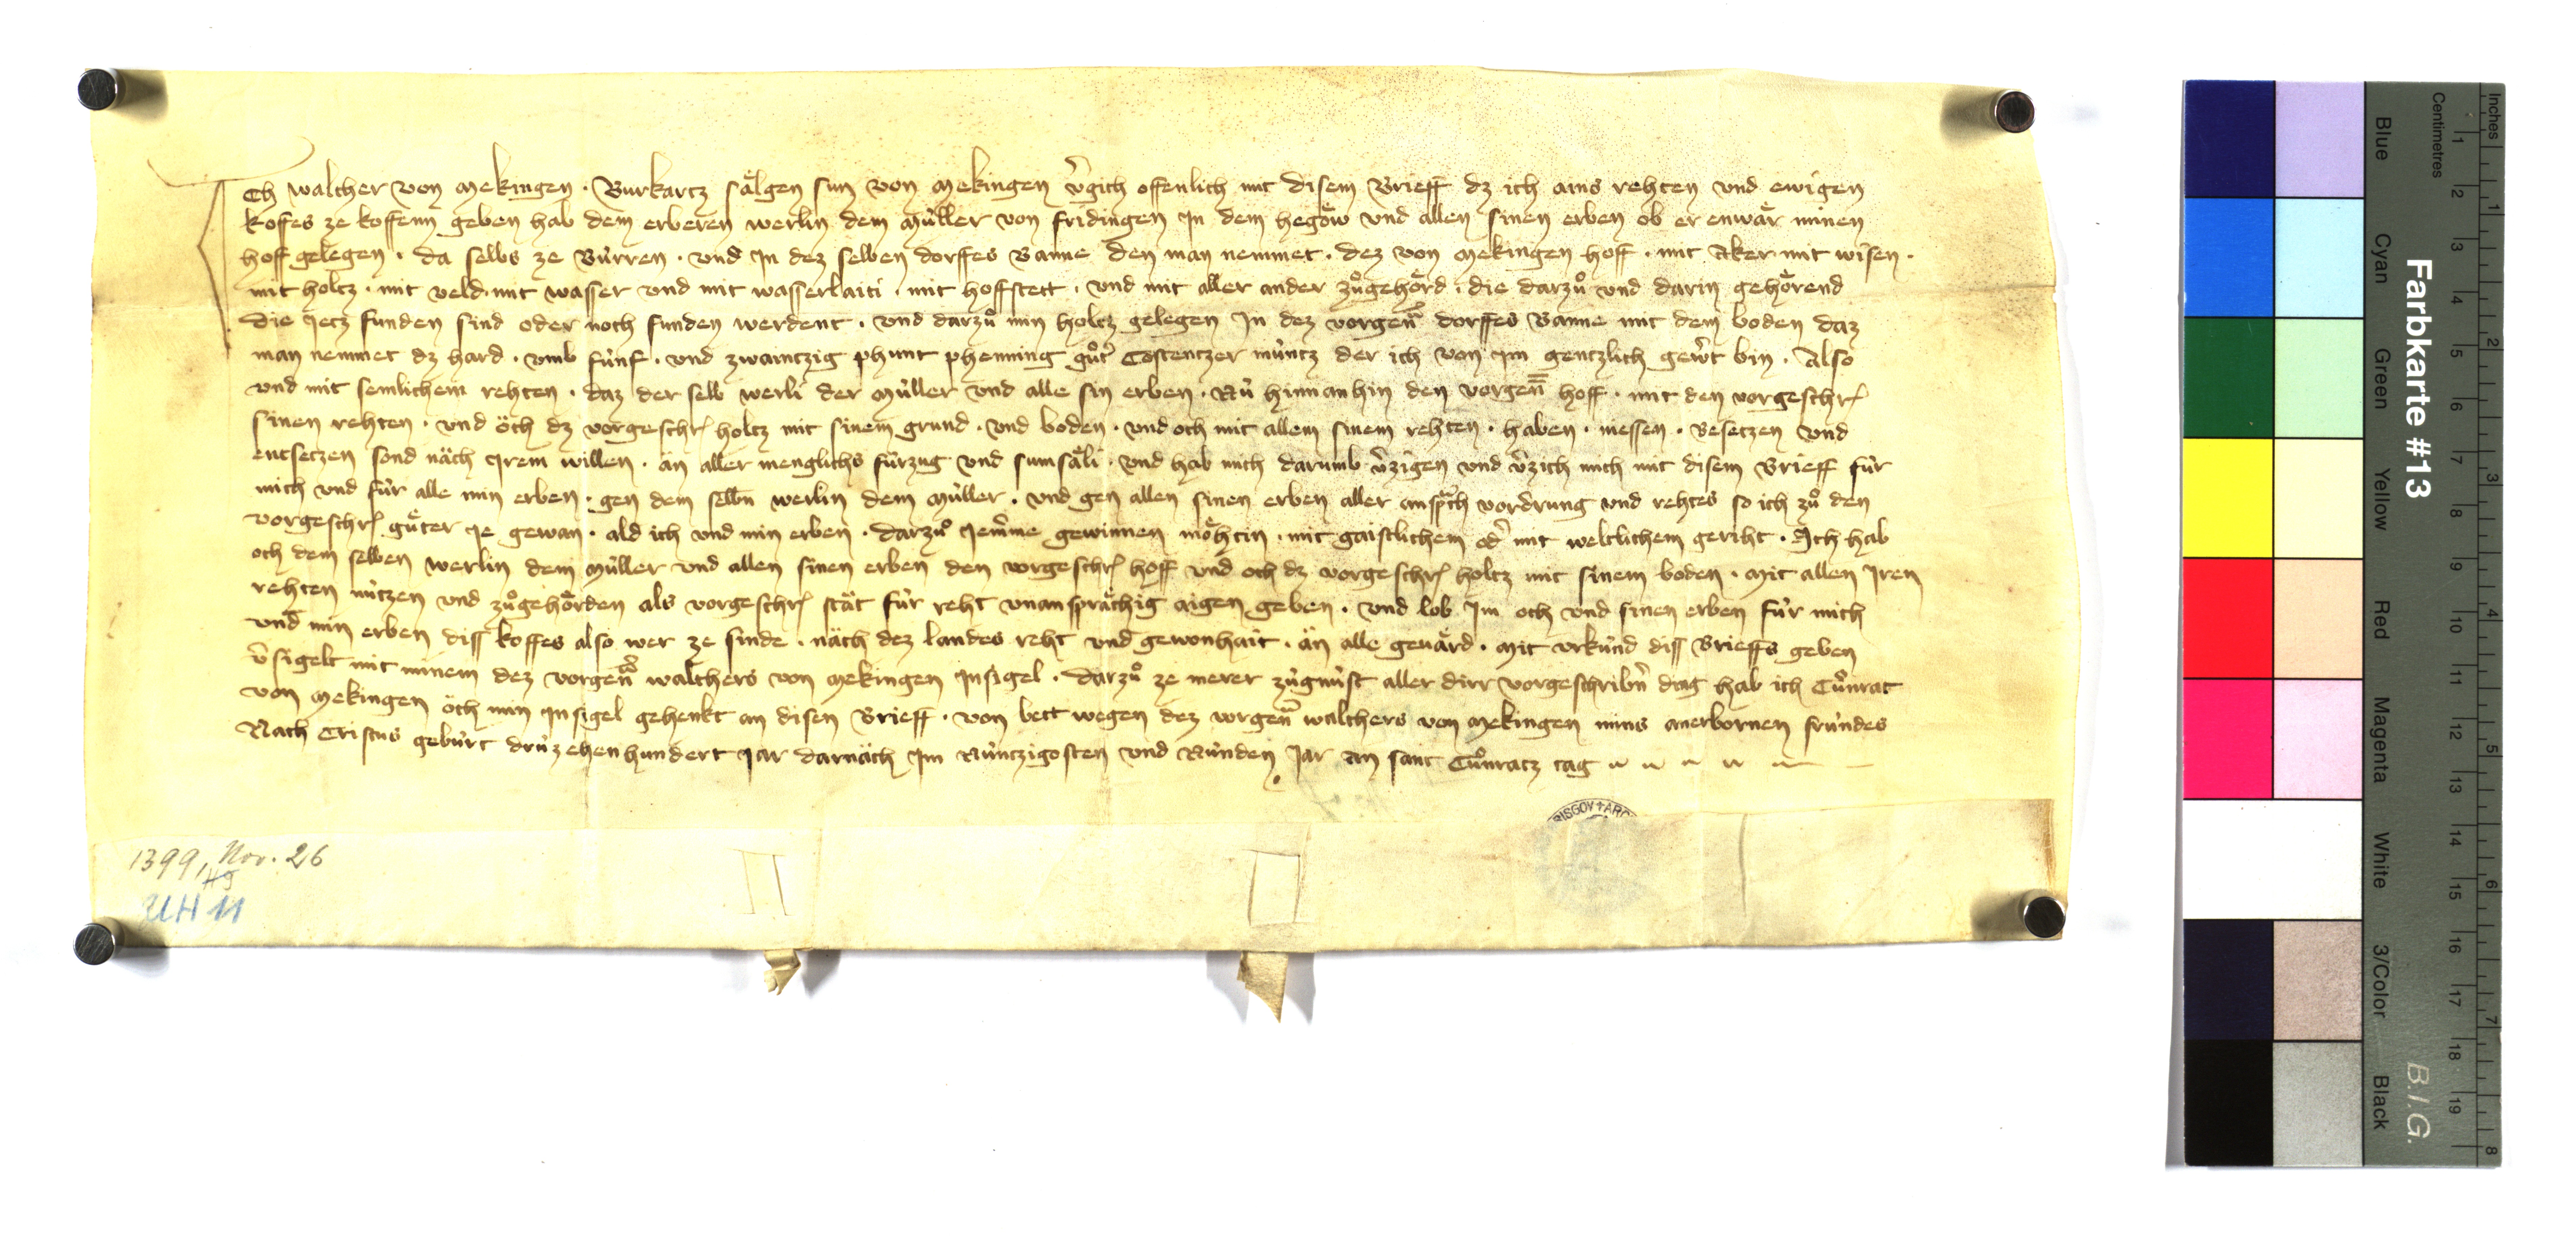 Ich walther von Mekingen . Burkartz sålgen sun von Mekingen v̉gich offenlich mit disem Brieff dz ich ains rehten und ewigen
koffes ze koffenn geben hab dem erberen werlin dem Mu̇ller von fridingen In dem hegöw und allen sinen erben ob er enwår minen
hoff gelegen . da selbs ze Bu̇rren . und In dez selben dorffes Banne den man nemmet . dez von Mekingen hoff . mit Aker mit wisen .
mit holtz . mit veld . mit wasser und mit wasserlaiti . mit hoffstett . und mit aller ander zů gehörd . die darzů und darin gehörend
die Jetz funden sind oder noch funden werdent . und darzů min holtz gelegen In dez vorgen̄ dorffes Banne mit dem boden daz
man nemmet dz hard . umb fu̇nf . und zwaintzig phunt phenning gůt̉ Costentzer mu̇ntz der ich von im gentzlich gew̉t bin . Also
und mit semlichem rehten . daz der selb werli der Mu̇ller und alle sin erben . Nu̇ hinnanhin den vorgen̄ hoff . mit den vorgeschr
sinen rehten . und öch dz vorgeschr holtz mit sinem grund . und boden . und och mit allem sinem rehten . haben . niessen . besetzen und
entsetzen sond näch Irem willen . än aller menglichs fu̇rzug und sumsåli . und hab mich darumb v̉zigen und v̉zich mich mit disem Brieff fu̇r
mich und fu̇r alle min erben . gen dem selbn̄ werlin dem Mu̇ller . und gen allen sinen erben aller anspräch vordrung und rehtes so ich zů den
vorgeschr gu̇ter Ie gewan . ald ich und min erben . darzů Iem̉me gewinnen möhtin . mit gaistlichem od̉ mit weltlichem geriht . Ich hab
och dem selben werlin dem Mu̇ller und allen sinen erben den vorgeschr hoff und och dz vorgeschr holtz mit sinem boden . mit allen Iren
rehten nu̇tzen und zůgehörden als vorgeschr stät fu̇r reht unanspråchig aigen geben . und lob Im och und sinen erben fu̇r mich
und min erben diss koffes also wer ze sinde . näch dez landes reht und gewonhait . än alle gevård . Mit urku̇nd diss Brieffs geben
v̉sigelt mit minem dez vorgen̄ walthers von Mekingen Insigel . Darzů ze merer zu̇gnu̇st aller dirr vorgeschribn̄ ding hab ich Cůnrat
von Mekingen öch min Insigel gehenkt an disen Brieff . von bett wegen dez vorgen̄ walthers von Mekingen mins anerbornen fru̇ndes
Nach Cristus gebu̇rt dru̇zehenhundert Jar darnäch Im Nu̇ntzigosten und Nu̇nden Jar an sant Cůnratz tag
BISGOV + ARC
1399, Nov. 26
H9
UH 11
Farbkarte #13
B.I.G.
Inches
Centimetres
1 2 3 4 5 6 7 8 9 10 11 12 13 14 15 16 17 18 19
1 2 3 4 5 6 7 8
Blue
Cyan
Green
Yellow
Red
Magenta
White
3/Color
Black